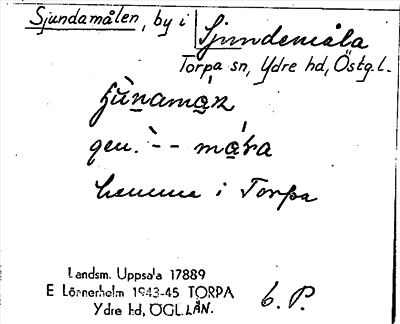 Sjundamålen, by i Sjundemåla
Torpa sn, Ydre hd, Östg.l.
gen. `-- 
hemma i Torpa
Landsm. Uppsala 17889
E Lörnerholm 1943-45 TORPA
Ydre hd, ÖGL.LÄN.
6. P.